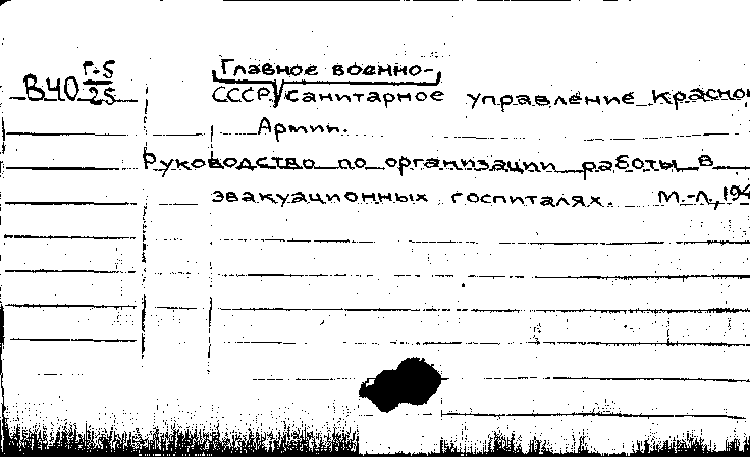 Главное военно-
В40 Г-5/25 СССР/Санитарное управление Красно
Армии.
Руководство по организации работы в
эвакуационных госпиталях. М.-Л., 194